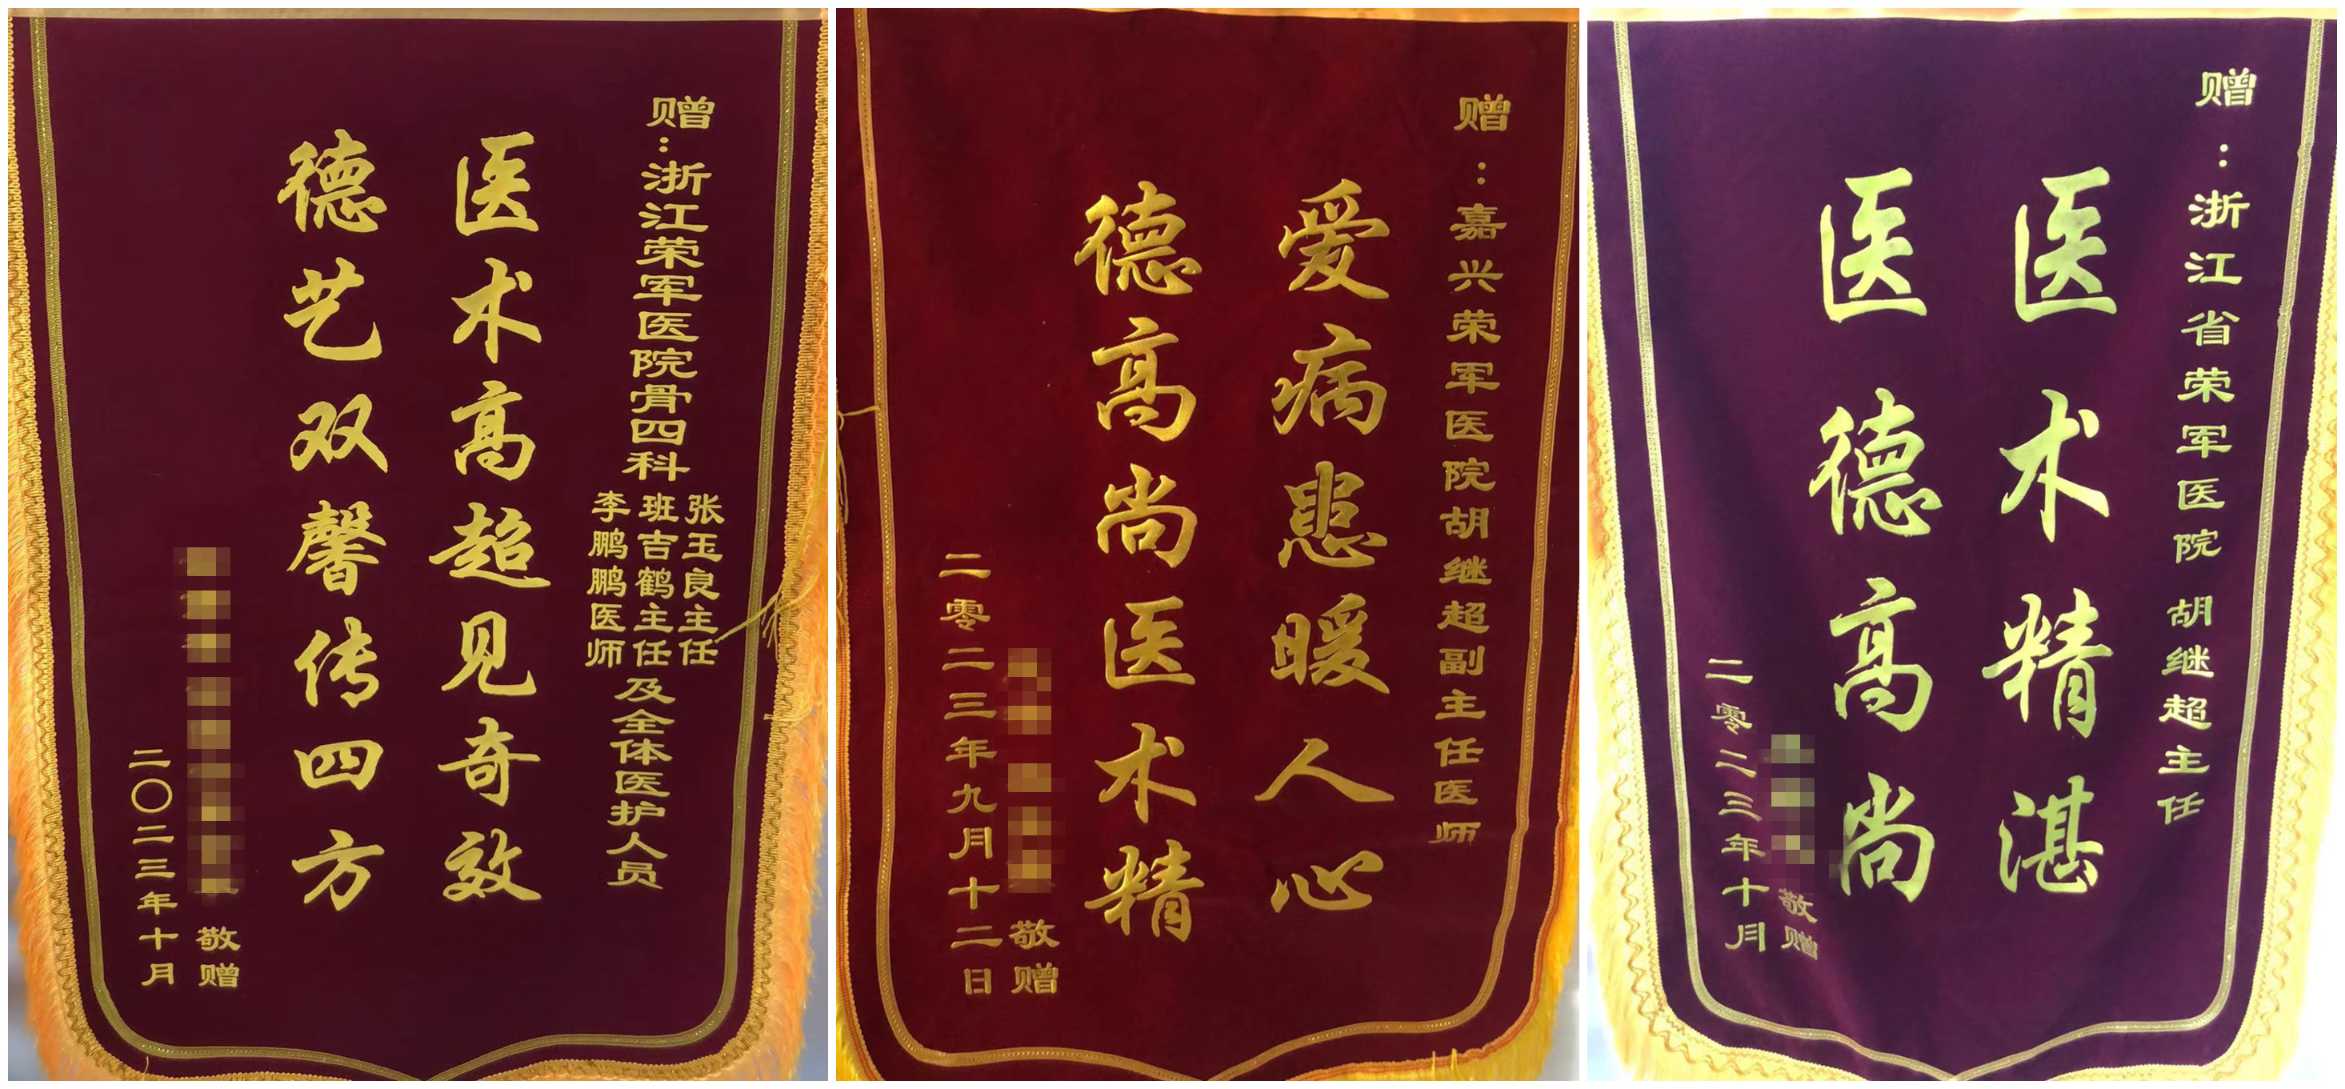 赠：浙江荣军医院骨四科
张玉良主任
班吉鹤主任
李鹏鹏医师
及全体医护人员
医术高超见奇效
德艺双馨传四方
敬赠
二〇二三年十月
赠：嘉兴荣军医院胡继超副主任医师
爱病患暖人心
德高尚医术精
敬赠
二零二三年九月十二日
赠：浙江省荣军医院胡继超主任
医术精湛
医德高尚
敬赠
二零二三年十月